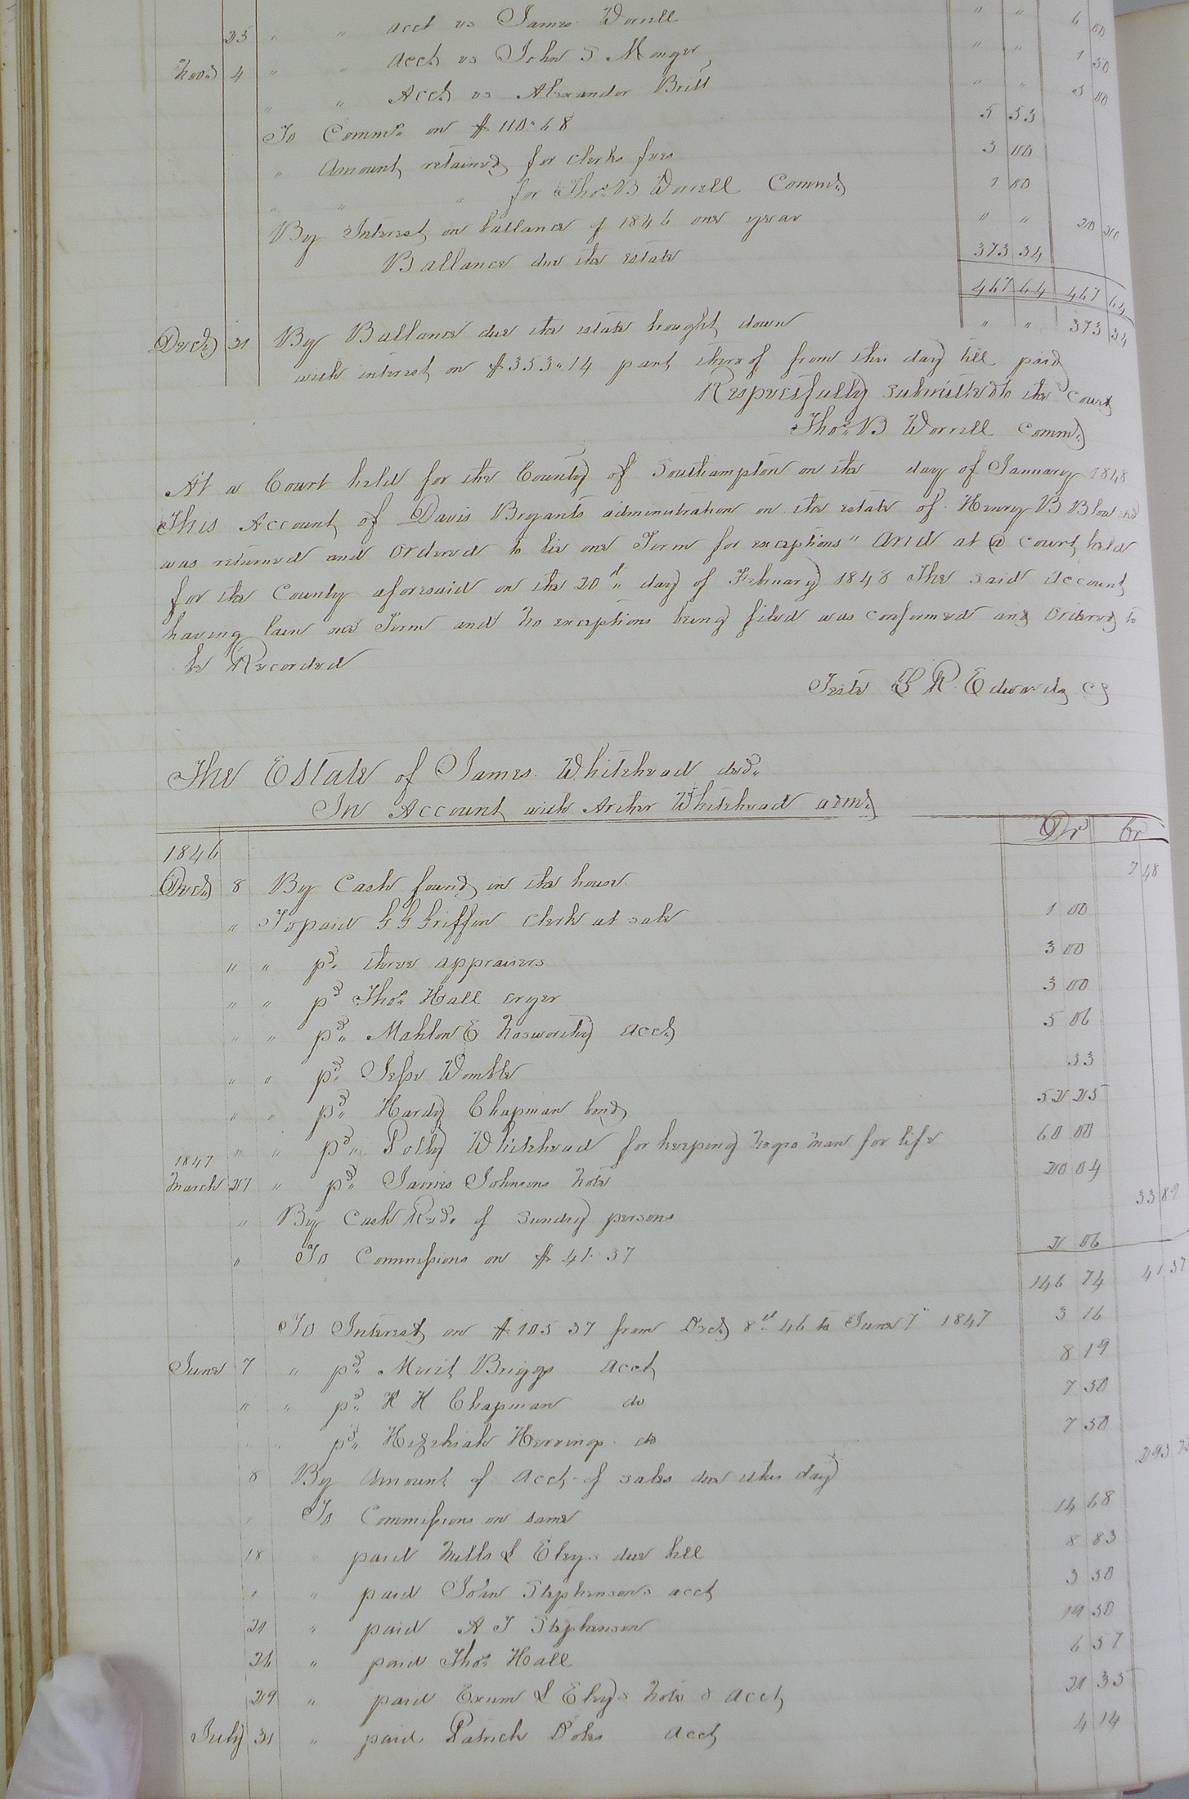 25 " " acct vs James Worrell " " 6 00
Novr 4 " " Acct vs John S Monger " " 1 50
" " Acct vs Alexander Britt " " 3 00
To Commrs on $110.68 5 53
" Amount retained for clerks fees 3 00
" " " for Thos. B Worrell Commr 1 00
By Interest on ballance of 1846 one year " " 20 20
Ballance due the estate 373 34
467 64 467 64
Decr 31 By Ballance due the estate brought down " " 373 34
with interest on $353.14 part thereof from this day till paid
Respectfully submitted to the Court
Thos. B Worrell Commr
At a Court held for the County of Southampton on the day of January 1848
This Account of Davis Bryants administration on the estate of Henry B Blow decd
was returned and Ordered to lie one Term for exceptions" And at a court held
for the County aforesaid on the 20th day of February 1848 The said Account
having lain one Term and no exceptions being filed was confirmed and Ordered to
be Recorded
Teste L R Edwards CC
The Estate of James Whitehead decd.
In Account with Archer Whitehead admr
Dr Cr
1846
Decr 8 By Cash found in the house 7 48
" To paid G G Griffin Clerk at sale 1 00
" " pd. three appraisers 3 00
" " pd Thos. Hall cryer 3 00
" " pd. Mahlon E Nosworthy acct 5 06
" " pd. Jesse Womble 33
" " pd. Hardy Chapman bond 52 25
" " pd. Polly Whitehead for keeping negro man for life 60 00
1847
March 27 " pd. James Johnsons note 20 04
" By Cash Recd. of sundry persons 33 89
" To Commissions on $41.37 2 06
146 74 41 37
To Interest on $105 37 from Decr 8th 46 to June 7th 1847 3 16
June 7 " pd. Merit Briggs Acct 8 19
" " pd. R H Chapman do 7 50
" " pd. Hezekiah Herring do 7 50
8 By Amount of Acct of sales due this day
" To Commissions on same 14 68
18 " paid Mills L Eleys due bill 8 83
" " paid John Stephensons acct 3 50
21 " paid A T Stephenson 19 50
26 " paid Thos. Hall 6 57
29 " paid Exum L Eleys note & Acct 21 35
July 31 " paid Patrick Doles Acct 4 14